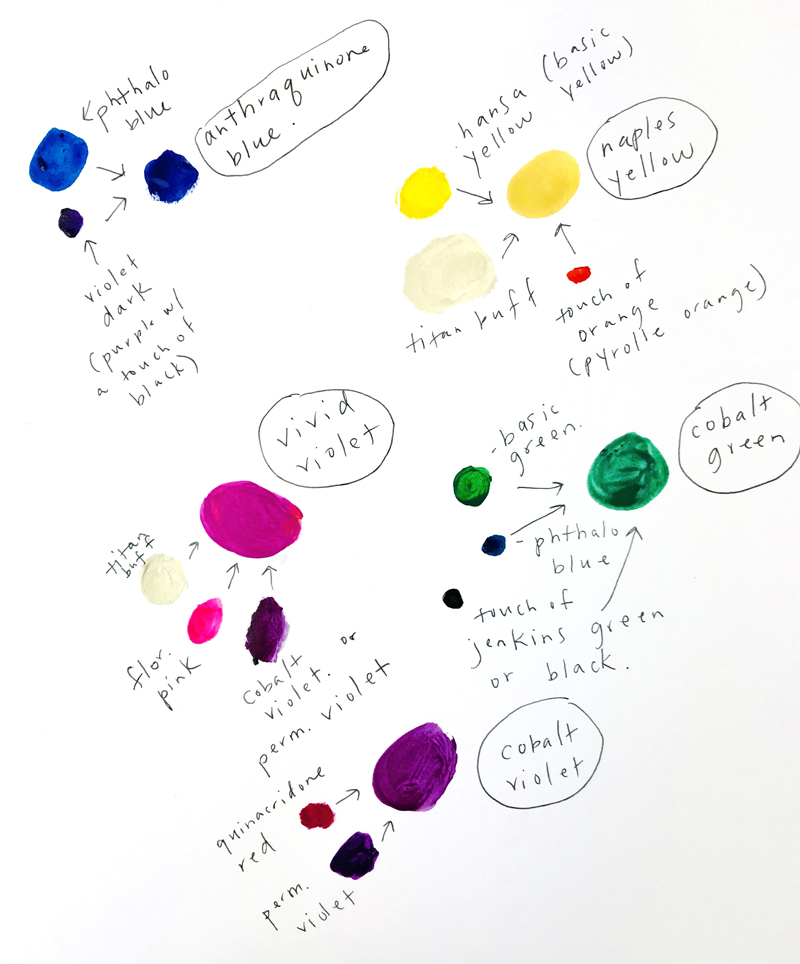 phthalo
blue
anthraquinone
blue.
violet
dark
(purple w/
a touch of
black)
hansa (basic
yellow yellow)
naples
yellow
titan buff
touch of
orange
(pyrolle orange)
vivid
violet
titan
buff
flor.
pink
cobalt
violet. or
perm. violet
- basic
green.
cobalt
green
- phthalo
blue
touch of
jenkins green
or black.
quinacridone
red
perm.
violet
cobalt
violet